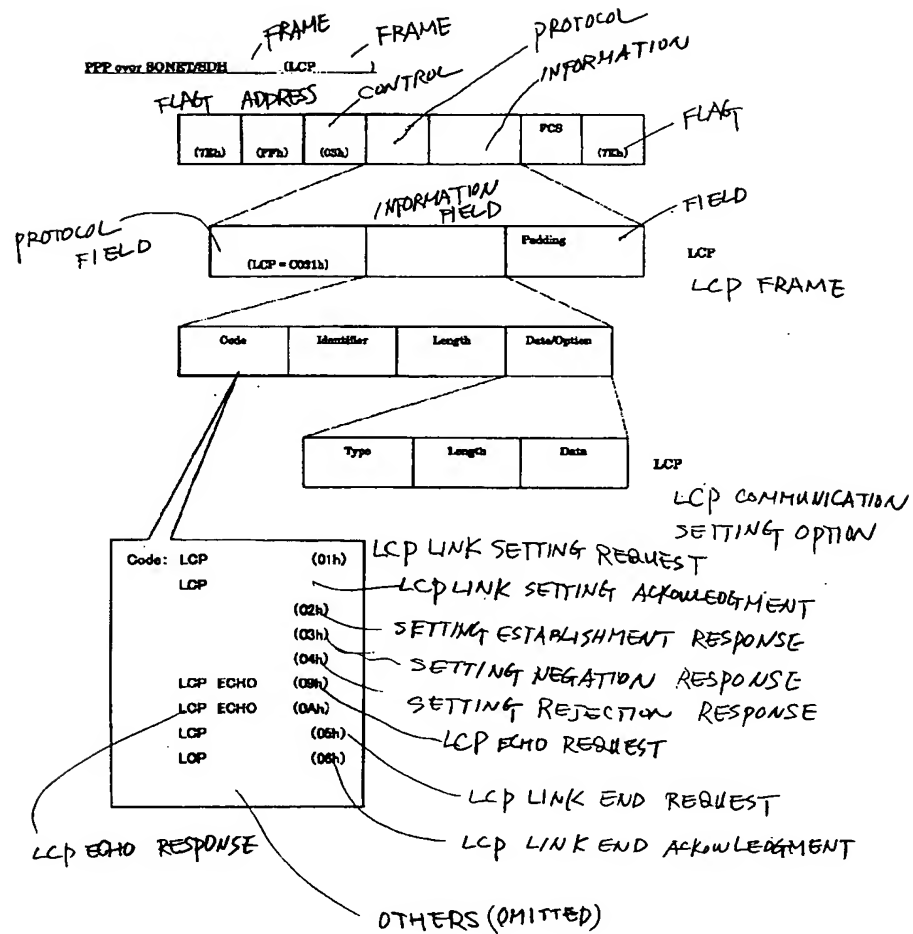 FRAME FRAME
PPP over SONET/SDH (LCP )
PROTOCOL
INFORMATION
FLAG ADDRESS CONTROL
FLAG
(7Eh) (FFh) (03h) FCS (7Eh)
PROTOCOL FIELD
INFORMATION FIELD
FIELD
(LCP = C021h) Padding
LCP
LCP FRAME
Code Identifier Length Data/Option
Type Length Data
LCP
LCP COMMUNICATION
SETTING OPTION
Code: LCP (01h) LCP LINK SETTING REQUEST
LCP LCP LINK SETTING ACKOWLEDGMENT
(02h) SETTING ESTABLISHMENT RESPONSE
(03h) SETTING NEGATION RESPONSE
(04h) SETTING REJECTION RESPONSE
LCP ECHO (09h) LCP ECHO REQUEST
LCP ECHO (0Ah)
LCP (05h) LCP LINK END REQUEST
LCP (06h) LCP LINK END ACKOWLEDGMENT
LCP ECHO RESPONSE
OTHERS (OMITTED)